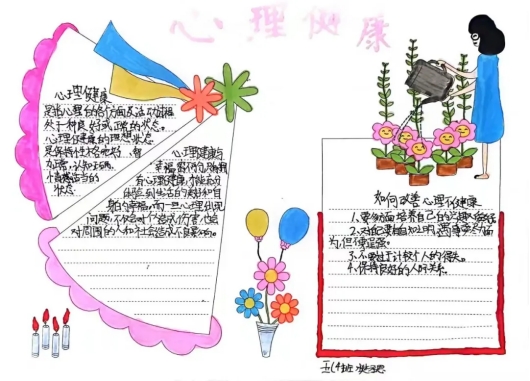 心理健康
心理健康
是指心理的各个方面及活动过程
处于一种良好或正常的状态。
心理健康的理想状态
是保持性格完好、智
力正常、认知正确、
情感适当的
状态
心理健康与
幸福密不可分，只有拥
有心理健康，才能去
体验到生活的美好和自
身的幸福，而一旦心理出现
问题，不仅会对个造成伤害也会
对周围的人和社会造成不良影响。
如何改善心理不健康
1、要多方面培养自己的兴趣爱好
2、对自己要有自知之明，
为，但不逞强。
3、不要过于计较个人的得失。
4、保持良好的人际关系。